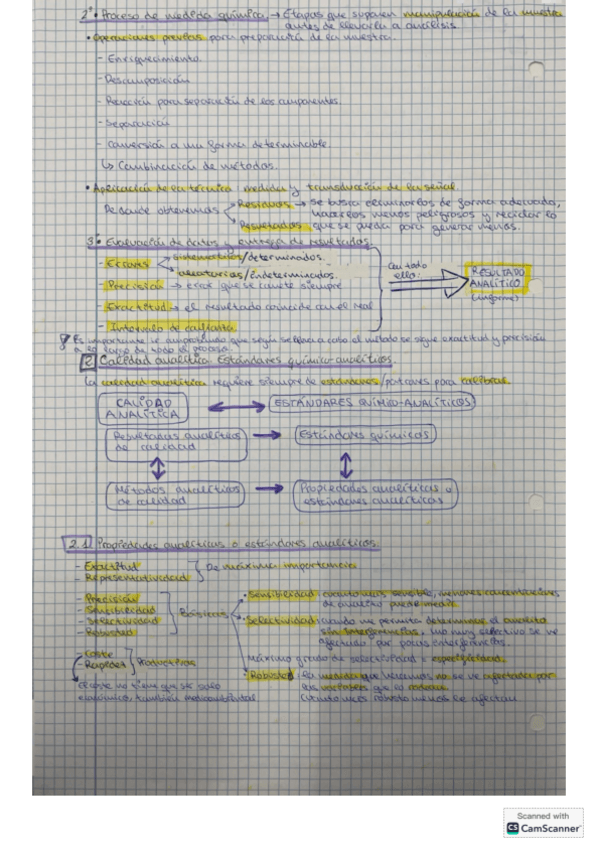 2º Proceso de medida química → Etapas que suponen manipulación de la muestra
antes de llevarla a análisis.
• Operaciones previas para preparación de la muestra.
- Enriquecimiento.
- Descomposición
- Reacción para separación de los componentes.
- Separación
- Conversión a una forma determinable
↳ Combinación de métodos.
• Aplicación de la técnica: medida y transducción de la señal.
De donde obtenemos → Residuos → se busca eliminarlos de forma adecuada,
hacerlos menos peligrosos y reciclar lo
→ Resultados que se pueda para generar menos.
3º Evaluación de datos y entrega de resultados
- Errores → sistemáticos/determinados.
→ aleatorios/indeterminados.
- Precisión → error que se comete siempre
- Exactitud → el resultado coincide con el real
- Intervalo de confianza
Con todo
ello:
RESULTADO
ANALÍTICO
(informe)
Es importante ir comprobando que según se lleva a cabo el método se sigue exactitud y precisión
a lo largo de todo el proceso.
2 Calidad analítica. Estándares químico-analíticos.
La calidad analítica requiere siempre de estándares/patrones para calibrar.
CALIDAD
ANALÍTICA
ESTÁNDARES QUÍMICO-ANALÍTICOS
Resultados analíticos
de calidad
Estándares químicos
Métodos analíticos
de calidad
Propiedades analíticas o
estándares analíticos
2.1 Propiedades analíticas o estándares analíticos.
- Exactitud
- Representatividad
De máxima importancia
- Precisión
- Sensibilidad
- Selectividad
- Robustez
Básicas
• Sensibilidad: cuanto más sensible, menores concentraciones
de analito puede medir.
• Selectividad: cuando me permita determinar el analito
sin interferencias. Uno muy selectivo se ve
afectado por pocas interferencias.
Máximo grado de selectividad = especificidad.
• Robustez: la medida que hacemos no se ve afectada por
las variables que lo rodean.
Cuanto más robusto menos le afectan
- Coste
- Rapidez
Productivas
el coste no tiene que ser solo
económico, también medioambiental
Scanned with
CS CamScanner